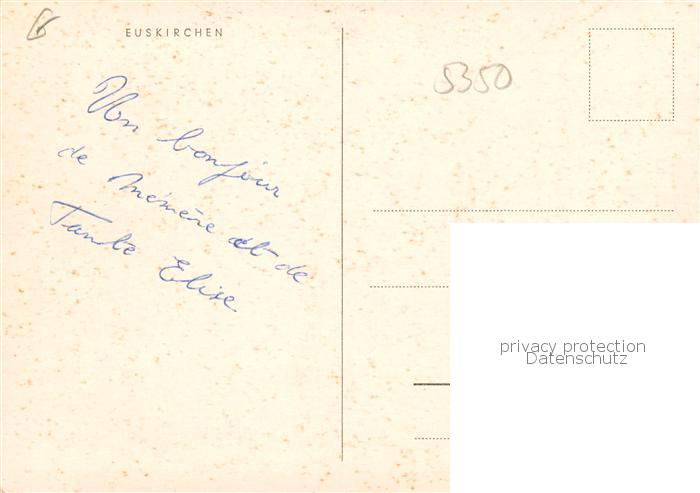 EUSKIRCHEN
5350
Un bonjour
de mémère et de
Tante Elise
privacy protection
Datenschutz